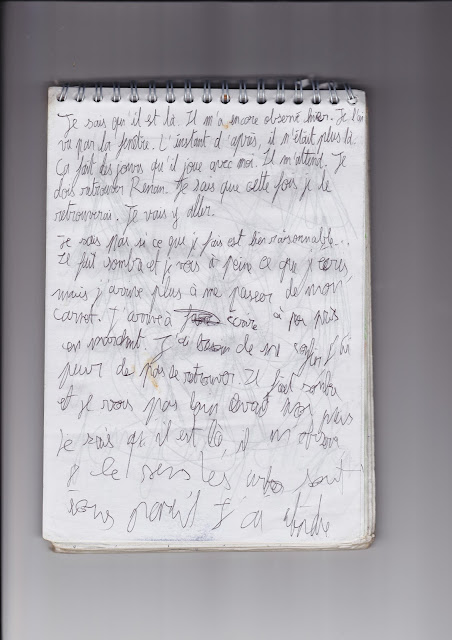 Je sais qu'il est là. Il m'a encore observé hier. Je l'ai
vu par la fenêtre. L'instant d'après, il n'était plus là.
Ça fait des jours qu'il joue avec moi. Il m'attend. Je
dois retrouver Renan. Je sais que cette fois je le
retrouverais. Je vais y aller.
Je sais pas si ce que je fais est bien raisonnable...
Il fait sombre et je vois à peine ce que j'écris
mais j'arrive plus à me passer de mon
carnet. J'arrive à écrire à peu près
en marchant. J'ai besoin de me confier J'ai
peur de pas le retrouver. Il fait sombre
et je vois pas bien devant moi
Je sais qu'il est là, il m'observe
je le sens les arbres sont
tous pareil J'ai